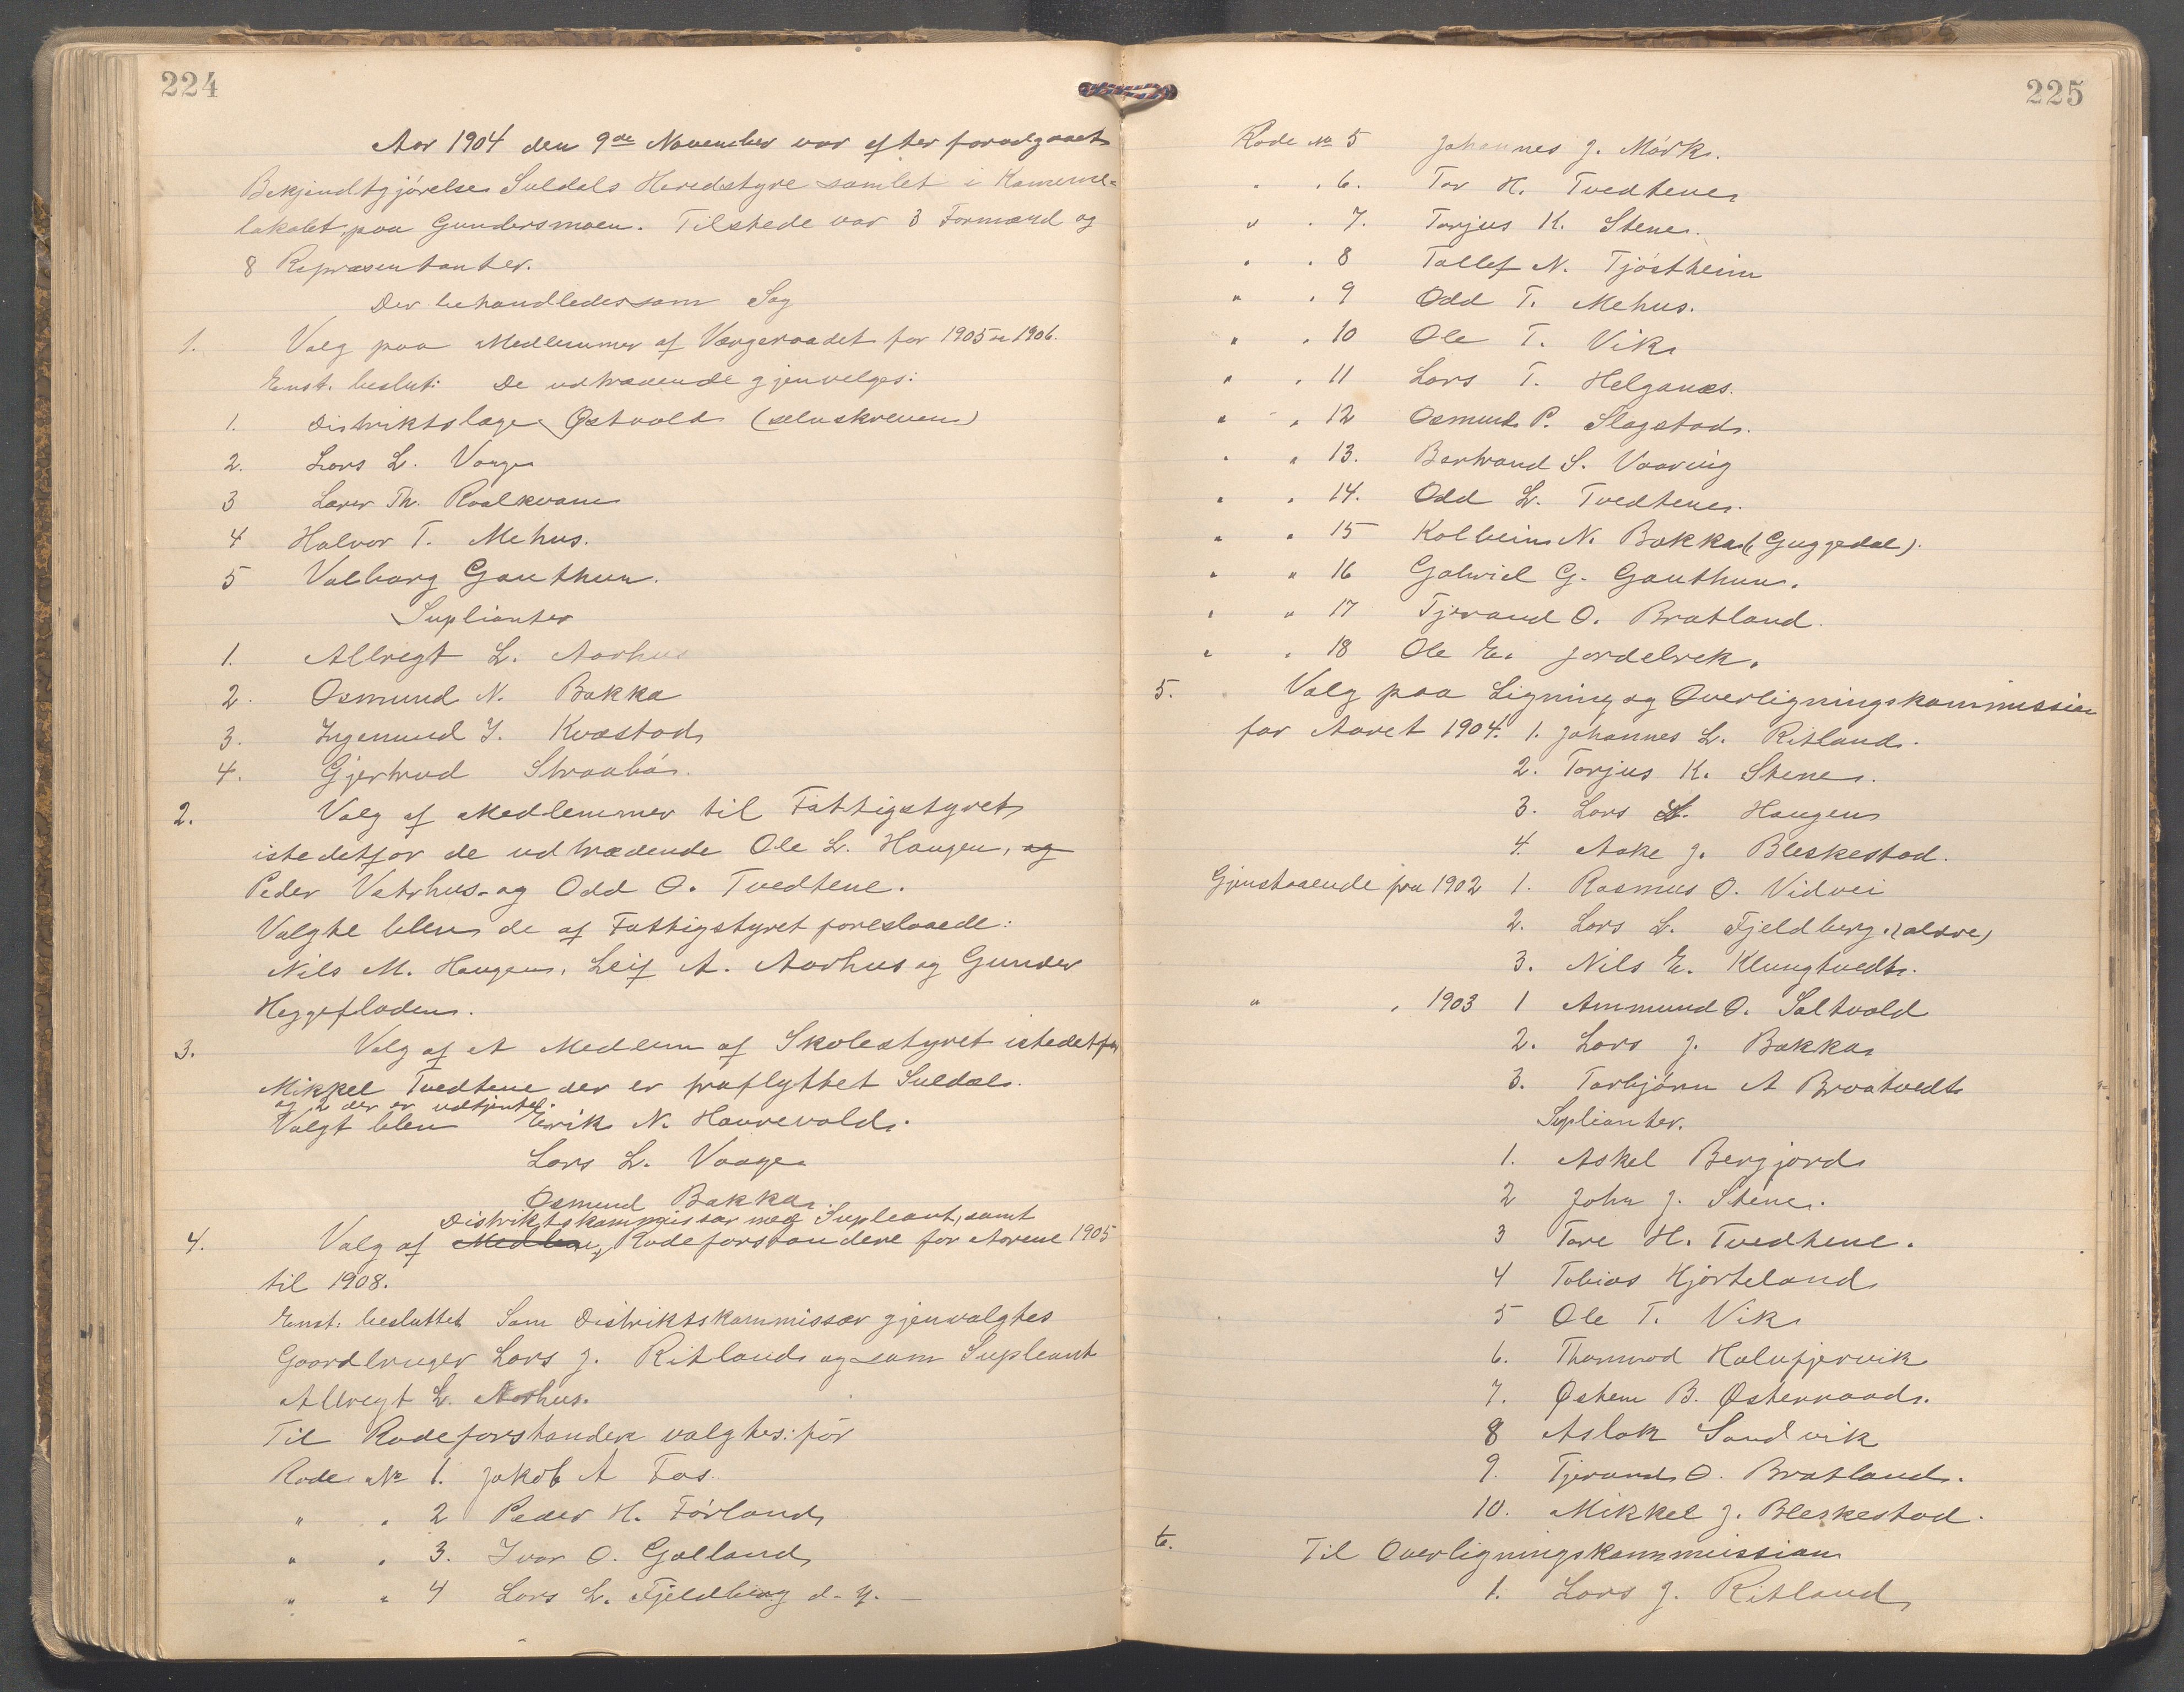 224
Aar 1904 den 9de November var efter forudgaaet
Bekjendtgjørelse Suldals Heredstyre samlet i Komune-
lokalet paa Gundersmoen. Tilstede var 3 Formænd og
8 Repræsentanter.
Der behandledes som Sag
1. Valg paa Medlemmer af Værgeraadet for 1905 - 1906.
Enst. beslut: De udtrædende gjenvelges:
1. Distriktslæge Østvold (selvskreven)
2. Lars L. Vaage
3 Lærer Th. Roalkvam
4 Halvor T. Mehus.
5 Valborg Gauthun.
Suplianter
1. Albregt L. Aarhus
2. Osmund N. Bakka
3. Ingemund J. Kvæstad
4. Gjertrud Straabø.
2. Valg af Medlemmer til Fattigstyret
istedetfor de udtrædende Ole L. Haugen, og
Peder Vatshus og Odd O. Tvedtene.
Valgte blev de af Fattigstyret foreslaaede:
Nils M. Haugen, Leif A. Aarhus og Gunder
Heggefloden.
3. Valg af et Medlem af Skolestyret istedetfor
Mikkel Tvedtene der er fraflyttet Suldal.
og 2 der er udtjente.
Valgt blev Eirik N. Havrevold.
Lars L. Vaage
Osmund Bakka.
Distriktskommissær med Supleant, samt
4. Valg af Medlem Rodeforstandere for Aarene 1905
til 1908.
Enst. besluttet Som Distriktskommissær gjenvalgtes
Gaardbruger Lars J. Ritland og som Supleant
Albregt L. Aarhus.
Til Rodeforstandere valgtes: för
Rode No 1. Jakob A Fos.
" " 2 Peder H. Förland
" " 3. Ivar O. Gålland
" " 4 Lars L. Fjeldberg d. y. -
225
Rode No 5 Johannes J. Mörk.
" " 6. Tor H. Tvedtene
" " 7. Torjus K. Stene.
" " 8 Tollef N. Tjöstheim
" " 9 Odd T. Mehus.
" " 10 Ole T. Vik
" " 11 Lars T. Helganæs.
" " 12 Osmund P. Slagstad.
" " 13. Bertrand S. Vaaring
" " 14. Odd L. Tvedtene.
" " 15 Kolbein N. Bakka (Guggedal).
" " 16 Gabriel G. Gauthun.
" " 17 Tjerand O. Bratland.
" " 18 Ole E. Jordebrek.
5. Valg paa Ligning og Overligningskommission
for Aaret 1904. 1. Johannes L. Ritland.
2. Torjus K. Stene.
3. Lars L. Haugen
4. Aake J. Bleskestad.
Gjenstaaende fra 1902 1. Rasmus O. Vidvei
2. Lars L. Fjeldberg (ældre)
3. Nils E. Klungtvedt.
" " 1903 1 Ammund O. Saltvold
2. Lars J. Bakka
3. Torbjörn A Bråtvedt
Suplianter.
1. Askel Bergjord
2 John J. Stene.
3 Tore H. Tvedtene.
4 Tobias Hjorteland
5 Ole T. Vik
6. Thormod Halvfjervik
7. Østen B. Østerraad.
8 Aslak Sandvik
9. Tjerand O. Bratland.
10. Mikkel J. Bleskestad.
6. Til Overligningskommission
1. Lars J. Ritland